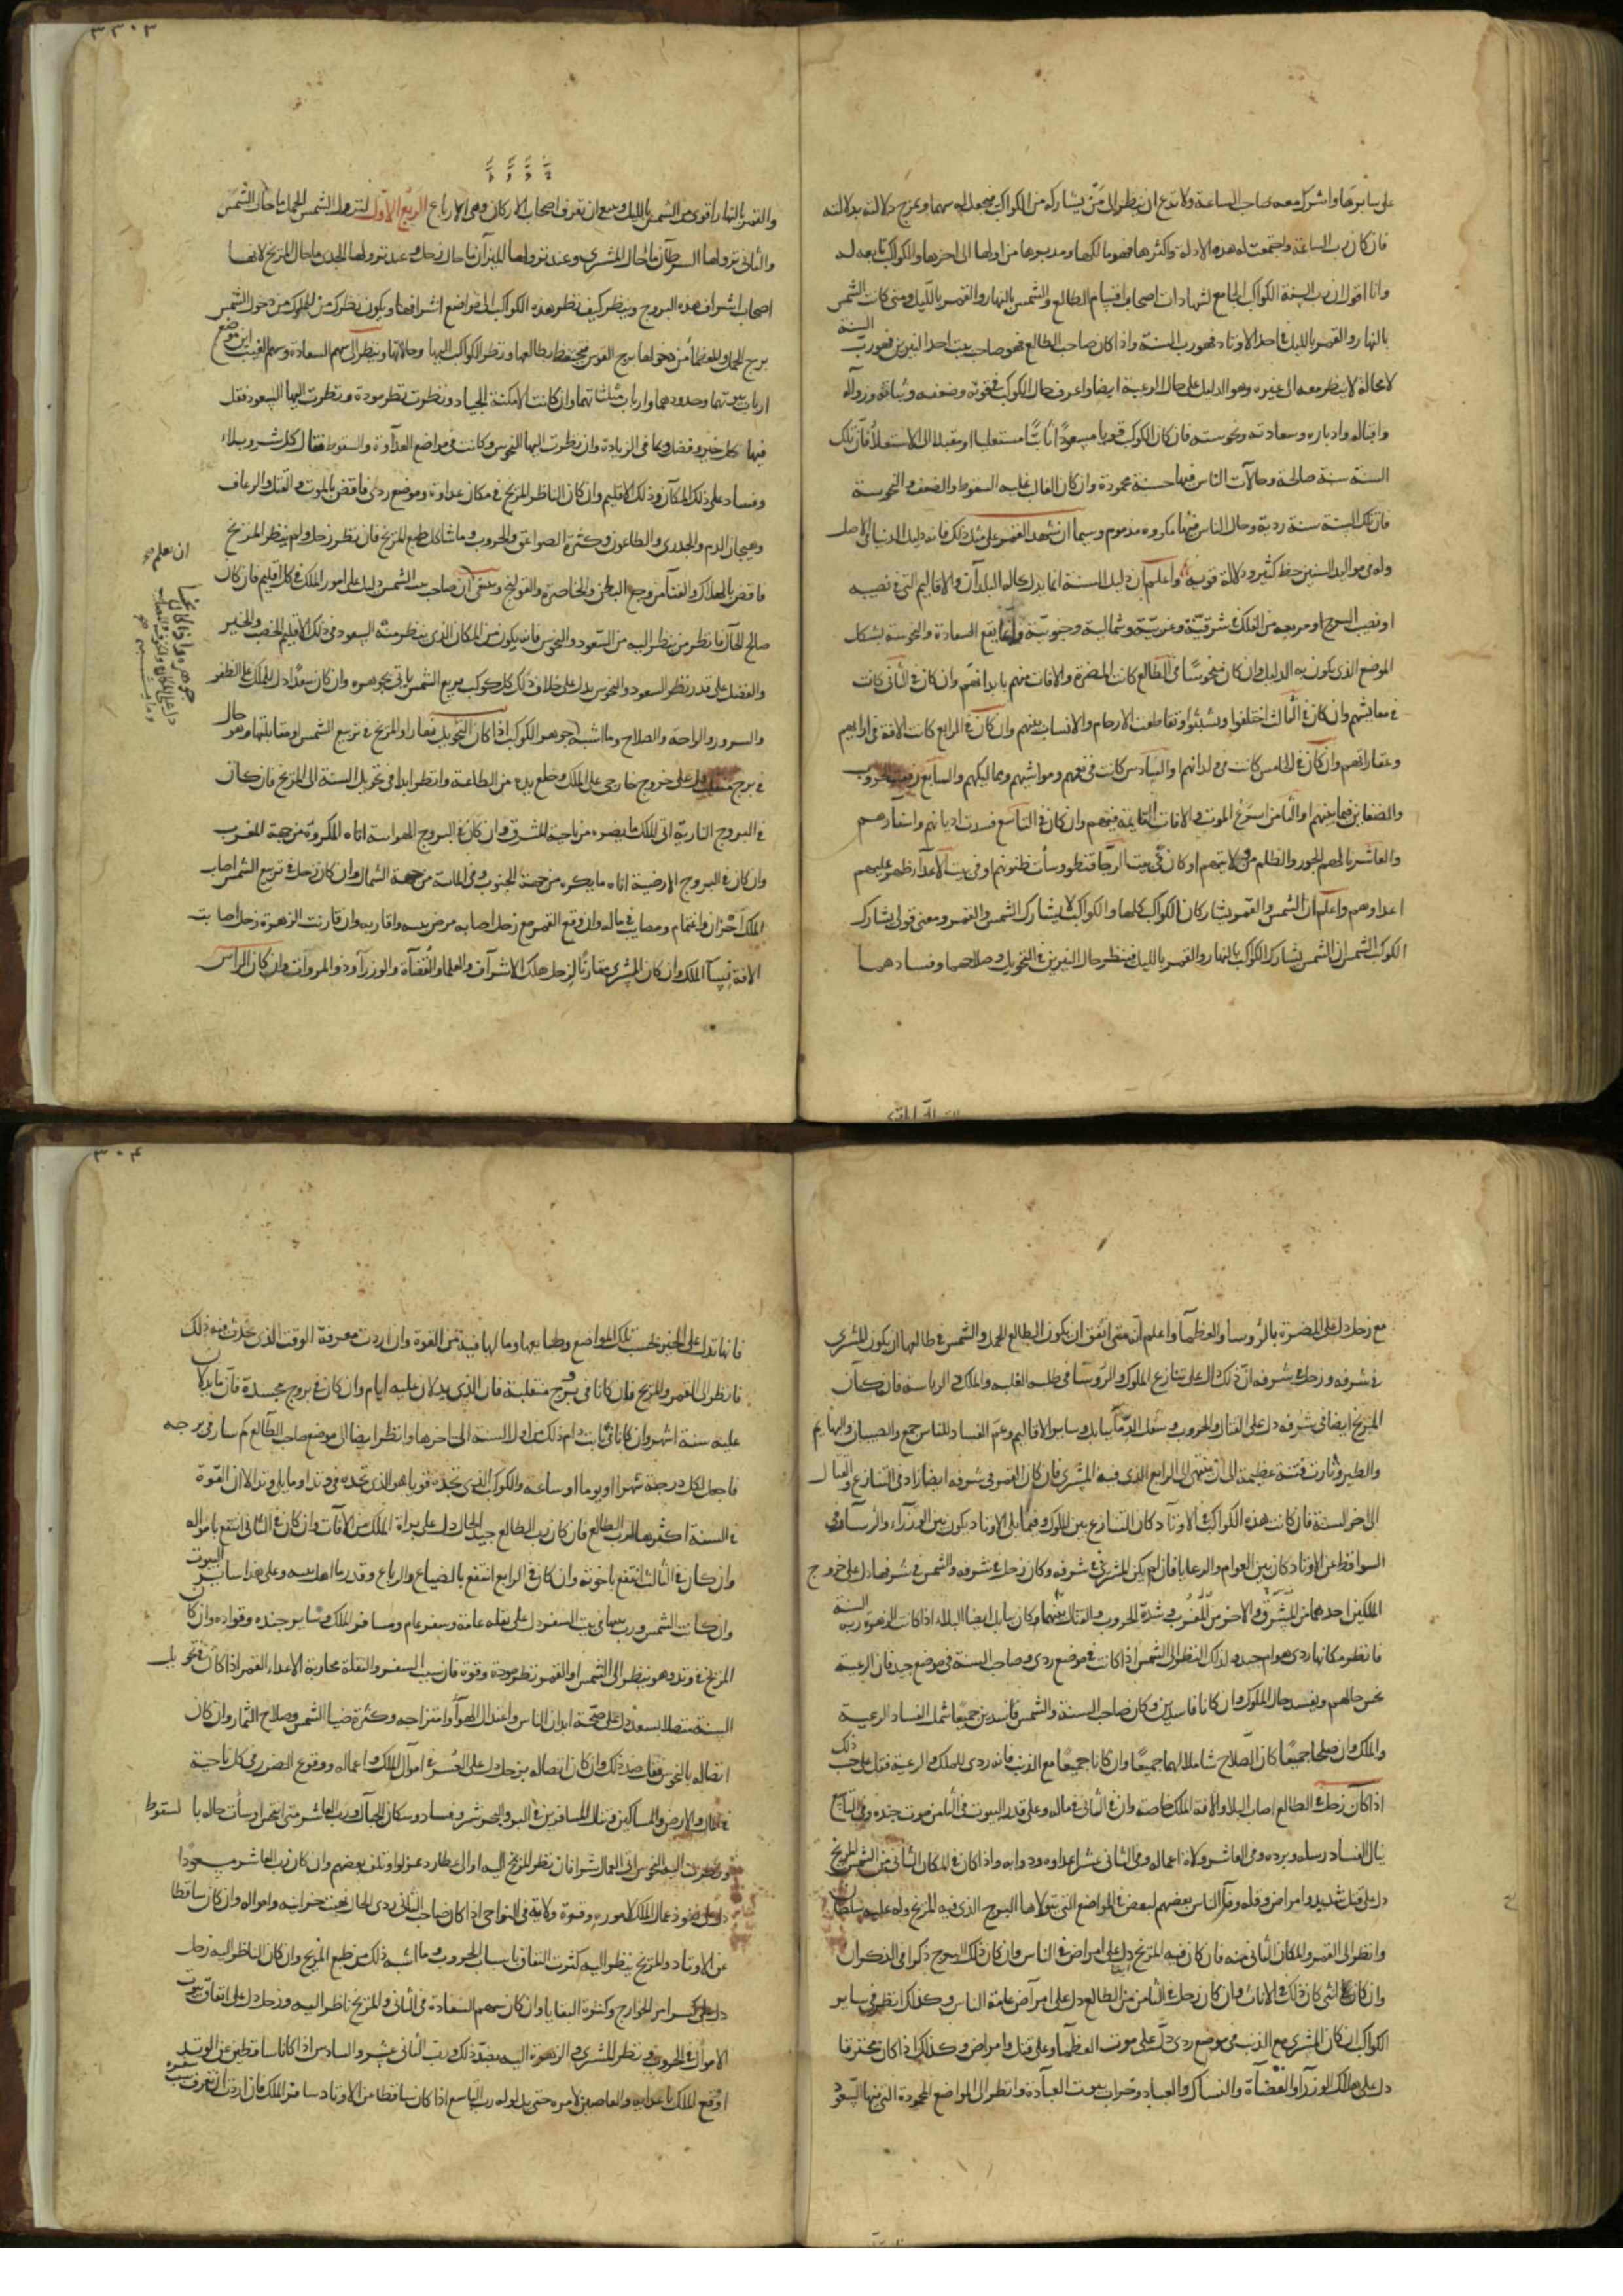 على سايرها واشرك معه صاحب الساعة ولا تدع ان ينظر الى من يشاركه من الكواكب فيجعل له سهما ويمزج دلالته بدلالته
فان كان رب الساعة واجتمعت له هذه الادلة واكثرها فهو مالكها ومدبرها من اولها الى اخرها والكواكب تابعه له
وانا اقول ان رب السنة الكواكب الجامع لشهادات اصحاب اقسام الطالع والشمس بالنهار والقمر بالليل ومتى كانت الشمس
بالنهار والقمر بالليل فى احد الاوتاد فهو رب السنة واذا كان صاحب الطالع فهو صاحب بيت احد النيرين فهو رب السنة
لا محالة لا ينظر معه الى غيره وهو الدليل على حال الرعية ايضا واعرف حال الكوكب فى قوته وضعفه وثباته وزواله
واقباله وادباره وسعادته ونحوسته فان كان الكوكب قويا مسعودا ثابتا مستعليا او مقبلا الى الاستعلا فان تلك
السنة سنة صالحة وحالات الناس فيها حسنة محمودة وان كان الغالب عليه السقوط والضعف والنحوسة
فان تلك السنة سنة ردية وحال الناس فيها مكروه مذموم وسيما ان شهد القمر على مثل ذلك فانه دليل الدنيا فى الاصل
وله فى مواليد السنين حظ كثير ودلالة قوية واعلم ان دليل السنة انما يدل حاله البلدان والاقاليم التى فى نصيبه
او نصيب البروج او مربعه من الفلك شرقية وغربية وشمالية وجنوبية وانما يقع السعادة والنحوسة بشكل
الموضع الذى يكون به الدليل وان كان منحوسا فى الطالع كانت المضرة والافات منهم بابدانهم وان كان فى الثانى كانت
فى معايشهم وان كان فى الثالث اختلفوا وتشتتوا وتقاطعت الارحام والانساب بينهم وان كان فى الرابع كانت الافة فى اراضيهم
وعقاراتهم وان كان فى الخامس كانت فى ولدانهم او السادس كانت فى نعمهم ومواشيهم ومماليكهم والسابع الحروب
والضغاين فيما بينهم او الثامن اسرع الموت والافات القايمة فيهم وان كان فى التاسع فسدت اديانهم واسفارهم
والعاشر نالهم الجور والظلم من ولاتهم او كان فى بيت الرجا قنطو وسأت ظنونهم او فى بيت الاعدا ظهر عليهم
اعداوهم واعلم ان الشمس والقمر يشاركان الكواكب كلها والكواكب لا يشارك الشمس والقمر ومعنى قولى يشارك
الكوكب الشمس ان الشمس يشارك الكواكب بالنهار والقمر بالليل فينظر حال النيرين فى التحويل وصلاحهما وفسادهما
٣٠٣
والقمر بالنهار اقوى من الشمس بالليل وينبغى ان تعرف اصحاب الاركان وهى الارباع الربع الاول لنزول الشمس الحمل ما حال الشمس
والثانى نزولها السرطان ما حال المشترى وعند نزولها الميزان ما حال زحل وعند نزولها الجدى ما حال المريخ لانها
اصحاب اشراف هذه البروج وينظر كيف نظر هذه الكواكب الى مواضع اشرافها ويكون نظرك من الملوك من دخول الشمس
برج الحمل وللعظما من دخولها برج القوس فيحفظ بطالعها ونظر الكواكب اليها وحالاتها وينظر الى سهم السعادة وسهم الغيب اين موضع
ارباب بيوتهما وحدودهما وارباب مثلثاتهما وان كانت الامكنة الجياد ونظرت نظر مودة ونظرت اليها السعود فقل
فيها بكل خير وفضل ونما فى الزيادة وان نظرت اليها النحوس وكانت فى مواضع العداوة والسقوط فقال كل شر وبلاء
وفساد على ذلك المكان وذلك الاقليم وان كان الناظر المريخ فى مكان عداوة وموضع ردى فاقض بالموت والقتل والرعاف
وهيجان الدم والجدرى والطاعون وكثرة الصواعق والحروب وما شاكل طبع المريخ فان نظر زحل ولم ينظر المريخ
فاقض بالهلاك والفنا من وجع البطن والخاصرة والقولنج وينبغى ان صاحب بيت الشمس دليل على امور الملك فى كل اقليم فان كان
صالح الحال فانظر من ينظر اليه من السعود والنحوس فانه يكون من المكان الذى ينظر منه السعود فى ذلك الاقليم الخصب والخير
والفضل على قدر نظر السعود والنحوس يدل على خلاف ذلك كل كوكب يربع الشمس ياتى بجوهره وان كان سعدا دل للملك على الظفر
والسرور والراحة والصلاح وما اشبه جوهر الكوكب اذا كان التحويل نهارا والمريخ فى تربيع الشمس او مقابلتها وهو حال
فى برج منقلب دل على خروج خارجى على الملك وخلع يده من الطاعة وانظر ابدا فى تحويل السنة الى المريخ فان كان
فى البروج النارية اتى الملك ما يضره من ناحية المشرق وان كان فى البروج الهواية اتاه المكروه من جهة المغرب
وان كان فى البروج الارضية اتاه ما يكره من جهة الجنوب وفى المائية من جهة الشمال وان كان زحل فى تربيع الشمس اصاب
الملك احزان واغتمام ومصايب فى ماله وان وقع القمر مع زحل اصابه مرض واقاربه وان قارنت الزهرة زحل اصابت
الافة نسآ الملك وان كان المشترى مقارنا لزحل هلك الاشراف والعلما والقضاة والوزراء وذو المروآت وان كان الراس
ان علم
جوهره واذا كان
٣٠٤
مع زحل دل على المضرة بالروسا والعظما واعلم انه متى اتفق ان يكون الطالع الحمل والشمس فى طالعها او يكون المشترى
فى شرفه وزحل فى شرفه ان ذلك دال على تنازع الملوك والروسا فى طلب الغلبه والملك والرياسه فان كان
المريخ ايضا فى شرفه دل على القتل والحروب وسفك الدما ببابل وساير الاقاليم وعم الفساد للناس جمع والصبيان والبهايم
والطير وثارت فتنة عظيمة الى ان تنتهى الى الرابع الذى فيه المشترى فان كان القمر فى شرفه ايضا زاد فى التنازع والقتال
الى اخر السنة فان كانت هذه الكواكب فى الاوتاد كان التنازع بين الملوك وفيما يلى الاوتاد يكون بين الوزراء والرساء وفى
السواقط عن الاوتاد كان بين العوام والرعايا فان لم يكن المشترى فى شرفه وكان زحل فى شرفه والشمس فى شرفها دل على خروج
الملكين احدهما من المشرق والاخر من المغرب وشدة الحروب والقتال بينهما وكان ببابل ايضا البلاء اذا كانت الزهرة ربه السنة
فانظر مكانها ردى هو ام جيد ولذلك النظر الى الشمس اذا كانت فى موضع ردى وصاحب السنة فى موضع جيد فان الرعية
يحسن حالهم ويفسد حال الملوك وان كانا فاسدين وكان صاحب السنة والشمس فاسدين جميعا شمل الفساد الرعية
والملك وان صلحا جميعا كان الصلاح شاملا لهما جميعا وان كانا جميعا مع الذنب فانه ردى للملك والرعية فقل على حسب ذلك
اذا كان زحل فى الطالع اصاب البلا والافة الملك خاصة وان فى الثانى فى ماله وعلى قدر البيوت فى الثامن موت جنده وفى التاسع
ينال الفساد رسله وبرده وفى العاشر ولاة اعماله وفى الثانى عشر اعداوه ودوابه واذا كان فى المكان الثانى من الشمس المريخ
دل على قتل شديد وامراض وقله وقتل الناس بعضهم لبعض فى المواضع التى يتولاها البروج الذى فيه المريخ وله عليه سلطان
وانظر الى القمر والمكان الثانى منه فان كان فيه المريخ دل على امراض فى الناس وان كان ذلك البروج ذكر ا فى الذكران
وان كان انثى كان ذلك فى الاناث وان كان زحل فى الثامن من الطالع دل على امراض عامة الناس وكذلك انظر فى ساير
الكواكب ان كان المشترى مع الذنب فى موضع ردى دل على موت العظما وعلى قتل وامراض وكذلك اذا كان محترقا
دل على هلاك الوزرا والقضاة والنساك والعباد وخراب بيوت العبادة وانظر الى المواضع المحمودة التى فيها السعود
فانها تدل على الخير بحسب تلك المواضع وطبايعها وما لها فيه من القوة وان اردت معرفة الوقت الذى يحدث فيه ذلك
فانظر الى القمر والمريخ فان كانا فى بروج منقلبة فان الذى يدلان عليه ايام وان كان فى بروج مجسدة فان ما يدلان
عليه ستة اشهر وان كانا فى ثابت دام ذلك من اول السنة الى اخرها وانظر ايضا الى موضع صاحب الطالع كم سار فى برجه
فاجعل لكل درجة شهرا او يوما او ساعه والكوكب الذى تجده قويا هو الذى تجده فى وتد او ما يلى وتد الا ان القوة
فى السنة اكثرها لرب الطالع فان كان رب الطالع جيد الحال دل على براة الملك من الافات وان كان فى الثانى انتفع باموال
وان كان فى الثالث انتفع باخوته وان كان فى الرابع انتفع بالضياع والرباع وقدر ما اهل بيته وعلى هذا ساير البيوت
وان كانت الشمس وربها فى بيت السفر دل على نقله عامة وسفر عام ومسافر الملك وساير جنده وقواده وان كان
المريخ فى وتد وهو ينظر الى الشمس او القمر نظر مودة وقوة فان سبب السفر والنقلة محاربة الاعداء القمر اذا كان فى تحويل
السنة متصلا بسعد دل على صحة ابدان الناس واعتدال الهوا وامتزاجه وكثرة ضيا الشمس وصلاح الثمار وان كان
اتصاله بالنحوس فقل ضد ذلك وان كان اتصاله بزحل دل على العسر فى اموال الملك واعماله ووقوع الضرر فى كل ناحية
والارض والمساكين وتنال المسافرين فى البر والبحر شر وفساد وسكان الجبال ورب العاشر متى انحدر وسات حاله بالسقوط
ونظرت اليه النحوس اتى العمال شرا فان نظر المريخ اليه او الى عطارد عزلوا وتلف بعضهم وان كان رب العاشر مسعودا
دل على نفوذ عمال الملك لاموره وقوة ولاية فى النواحى اذا كان صاحب الثانى ردى الحال نحت خزاينه وامواله وان كان ساقطا
عن الاوتاد والمريخ ينظر اليه كثرت النفقات باسباب الحروب وما اشبه ذلك من طبع المريخ وان كان الناظر اليه زحل
دل على كسر الخوارج وكثرة البقايا وان كان سهم السعادة فى الثانى والمريخ ناظر اليه وزحل دل على انفاق بيوت
الاموال فى الحروب ونظر المشترى والزهرة اليه بضد ذلك رب الثانى عشر والسادس اذا كانا ساقطين عن الوتد
اوقع الملك باعدايه والعاصين لامره حتى يذلوا له رب التاسع اذا كان ساقطا عن الاوتاد سافر الملك فان اردت ان تعرف سفره